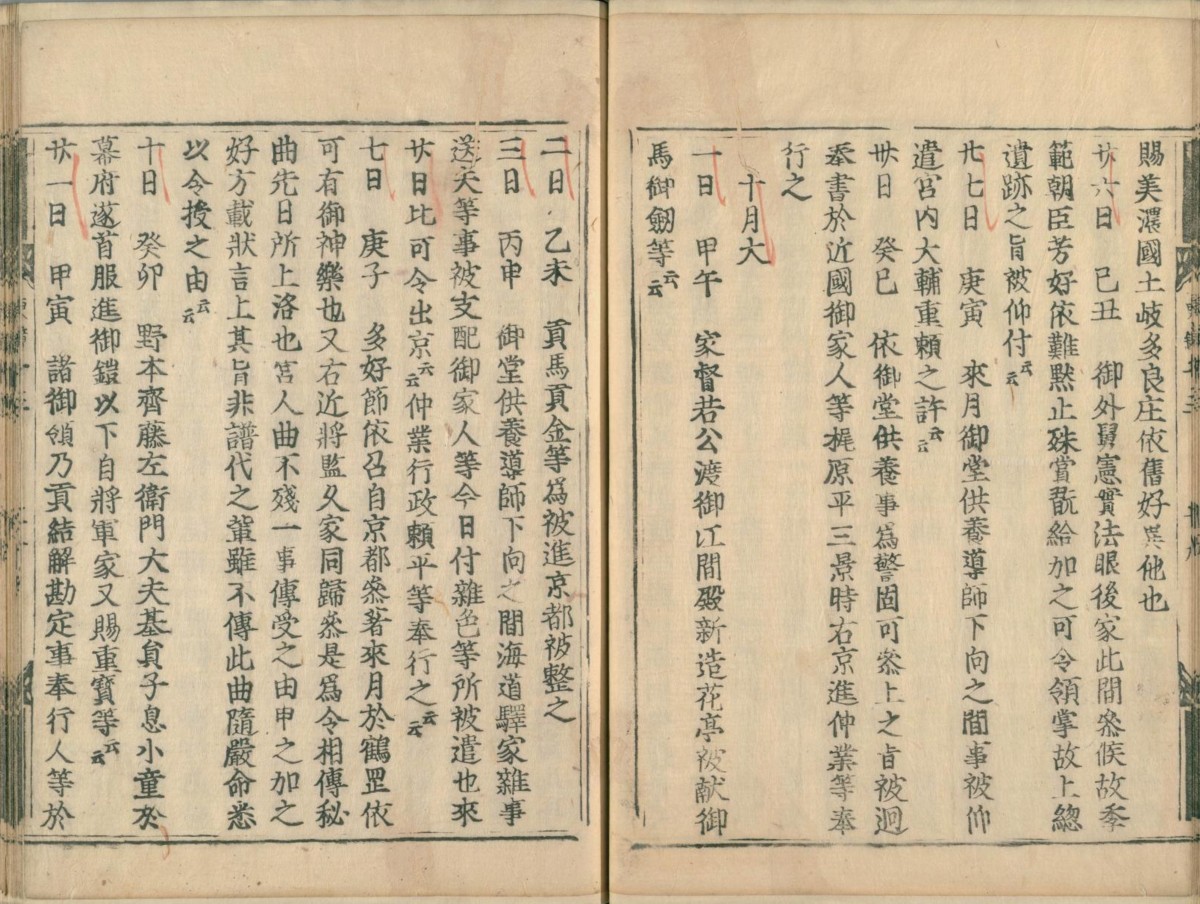 賜美濃國土岐多良庄依舊好異他也
廿六日　己丑　御外舅憲實法眼後家此間叅候故季
範朝臣芳好依難黙止殊賞翫給加之可令領掌故上総
遺跡之旨被仰付云云
廿七日　庚寅　來月御堂供養導師下向之間事被仰
遣宮内大輔重頼之許云云
卅日　癸巳　依御堂供養事爲警固可叅上之旨被廻
奉書於近國御家人等梶原平三景時右京進仲業等奉
行之
十月大
一日　甲午　家督若公渡御江間殿新造花亭被献御
馬御劔等云云
二日　乙未　貢馬貢金等爲被進京都被整之
三日　丙申　御堂供養導師下向之間海道驛家雜事
送夫等事被支配御家人等今日付雜色等所被遣也來
廿日比可令出京云云仲業行政頼平等奉行之云云
七日　庚子　多好節依召自京都叅著來月於鶴罡依
可有御神樂也又右近將監久家同歸叅是爲令相傳秘
曲先日所上洛也宮人曲不殘一事傳受之由申之加之
好方載狀言上其旨非譜代之輩雖不傳此曲隨嚴命悉
以令授之由云云
十日　癸卯　野本齊藤左衛門大夫基員子息小童於
幕府遂首服進御鎧以下自將軍家又賜重寳等云云
廿一日　甲寅　諸御領乃貢結解勘定事奉行人等於